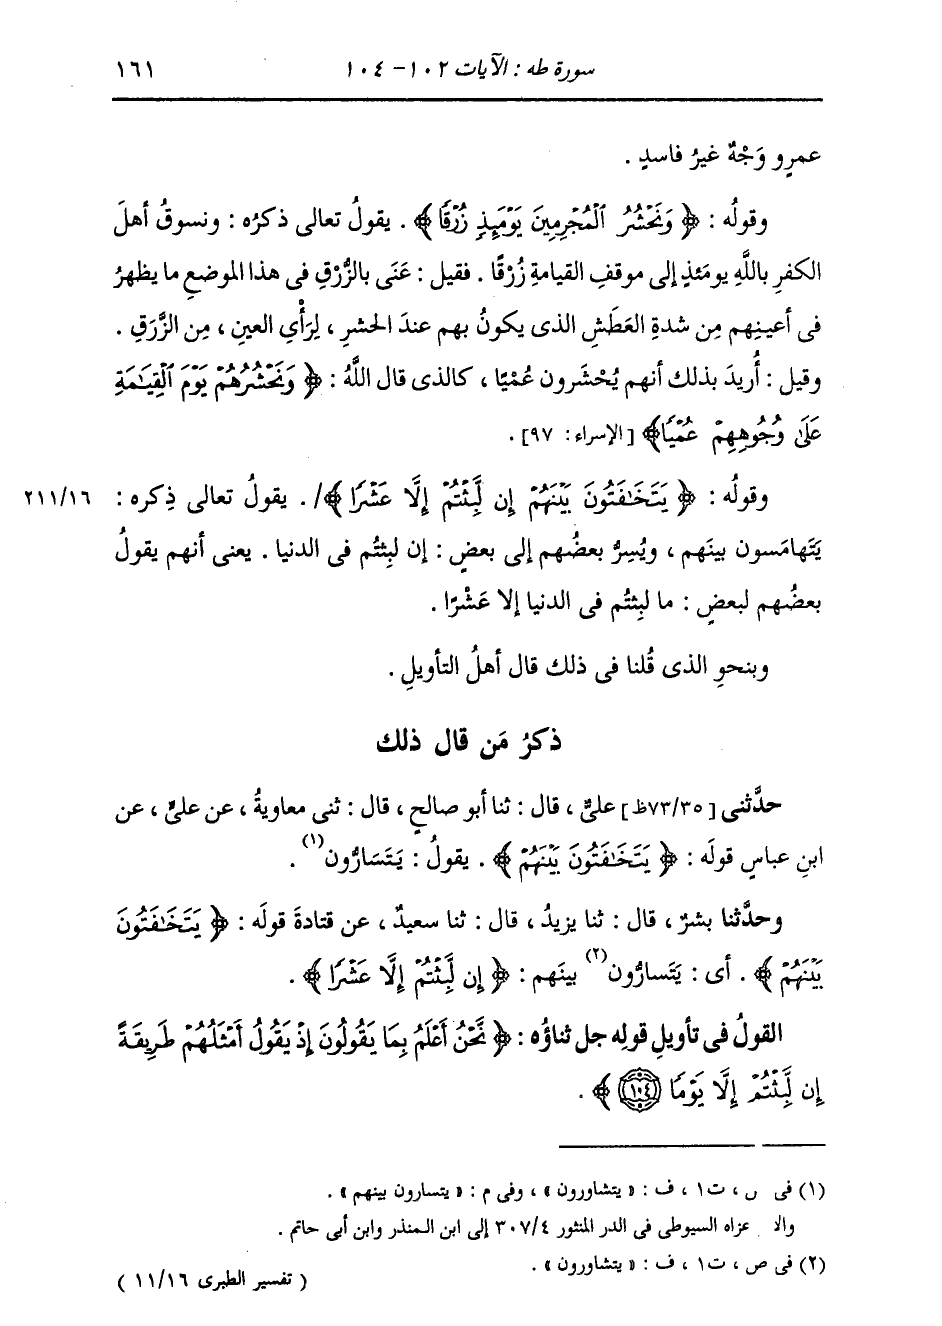 سورة طه : الآيات ١٠٢- ١٠٤ ١٦١
عمرٍو وَجْهٌ غيرُ فاسدٍ .
وقولُه : ﴿ وَنَحْشُرُ ٱلْمُجْرِمِينَ يَوْمَئِذٍ زُرْقًا ﴾ . يقولُ تعالى ذكرُه : ونسوقُ أهلَ
الكفرِ باللَّهِ يومَئذٍ إلى موقفِ القيامةِ زُرْقًا . فقيل : عَنَى بالزُّرْقِ فى هذا الموضعِ ما يظهرُ
فى أعينِهم مِن شدةِ العَطَشِ الذى يكونُ بهم عندَ الحشرِ ، لِرَأْيِ العينِ ، مِن الزَّرَقِ .
وقيل : أُريدَ بذلك أنهم يُحْشَرون عُمْيًا ، كالذى قال اللَّهُ : ﴿ وَنَحْشُرُهُمْ يَوْمَ ٱلْقِيَٰمَةِ
عَلَىٰ وُجُوهِهِمْ عُمْيًا ﴾ [الإسراء : ٩٧] .
وقولُه : ﴿ يَتَخَٰفَتُونَ بَيْنَهُمْ إِن لَّبِثْتُمْ إِلَّا عَشْرًا ﴾/ . يقولُ تعالى ذِكره : ٢١١/١٦
يَتَهامَسون بينَهم ، ويُسِرُّ بعضُهم إلى بعضٍ : إن لبِثتُم فى الدنيا . يعنى أنهم يقولُ
بعضُهم لبعضٍ : ما لبِثتُم فى الدنيا إلا عَشْرًا .
وبنحوِ الذى قُلنا فى ذلك قال أهلُ التأويلِ .
ذكرُ مَن قال ذلك
حدَّثنى [٧٣/٣٥ظ] علىٌّ ، قال : ثنا أبو صالحٍ ، قال : ثنى معاويةُ ، عن علىٍّ ، عن
ابنِ عباسٍ قولَه : ﴿ يَتَخَٰفَتُونَ بَيْنَهُمْ ﴾ . يقولُ : يَتَسَارُّون(١) .
وحدَّثنا بشرٌ ، قال : ثنا يزيدُ ، قال : ثنا سعيدٌ ، عن قتادةَ قولَه : ﴿ يَتَخَٰفَتُونَ
بَيْنَهُمْ ﴾ . أى : يَتَسارُّون(٢) بينَهم : ﴿ إِن لَّبِثْتُمْ إِلَّا عَشْرًا ﴾ .
القولُ فى تأويلِ قولِه جل ثناؤُه : ﴿ نَّحْنُ أَعْلَمُ بِمَا يَقُولُونَ إِذْ يَقُولُ أَمْثَلُهُمْ طَرِيقَةً
إِن لَّبِثْتُمْ إِلَّا يَوْمًا ١٠٤ ﴾ .
(١) فى ، ت١ ، ف : « يتشاورون » ، وفى م : « يتسارون بينهم » .
عزاه السيوطى فى الدر المنثور ٣٠٧/٤ إلى ابن المنذر وابن أبى حاتم .
(٢) فى ص ، ت١ ، ف : « يتشاورون » .
( تفسير الطبرى ١١/١٦ )